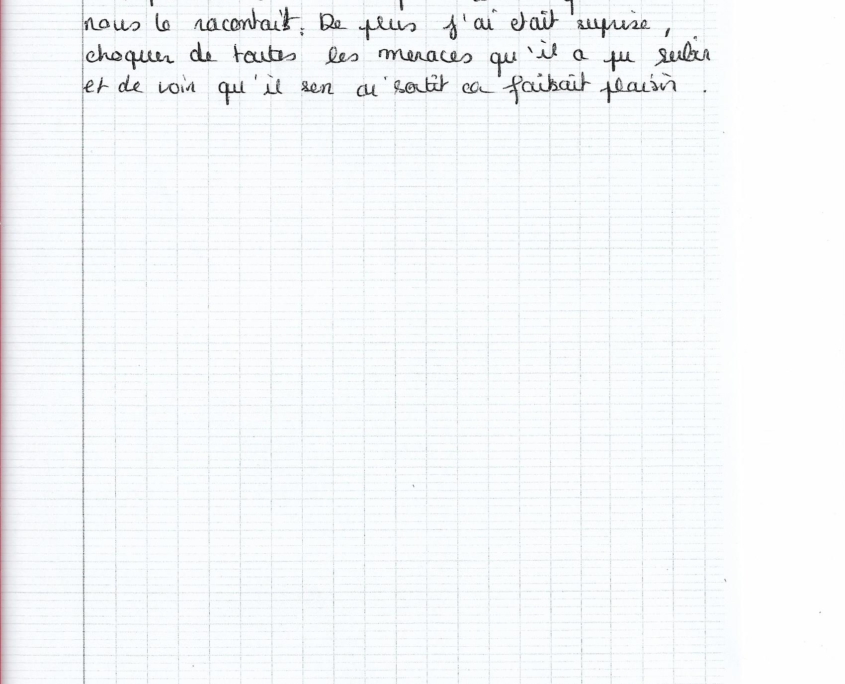 nous le racontait. De plus j'ai etait suprise,
choquer de toutes les menaces qu'il a pu subir
et de voir qu'il sen ai sortit ca faisait plaisir.